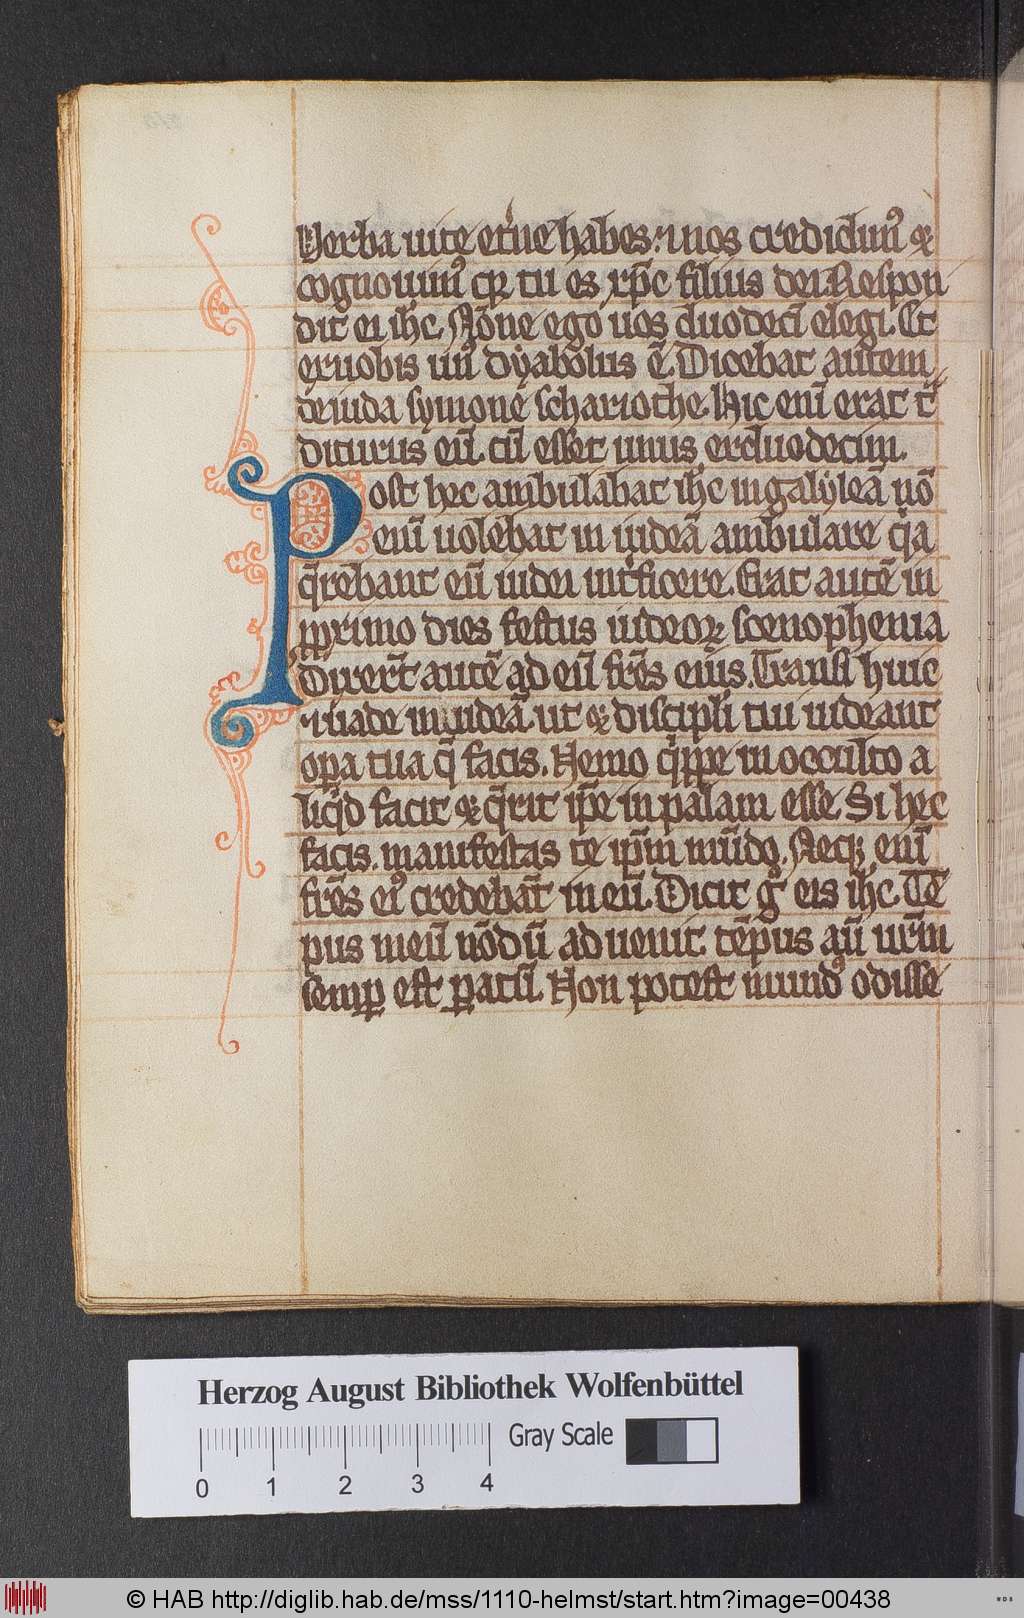 Verba uite et͛ne habes. ⁊nos credidim᷒ &
cognouim᷒ q͛ tu es xp̄c filius dei. Respon
dit ei ih̄c. Nōne ego uos duodecī elegi. Et
exuobis un᷒ dyabolus ē. Dicebat autem
deiuda symone schariothe. Hic enī erat t͛
diturus eū. cū esset unus exduodecim.
Post hec ambulabat ih̄c ingalyleā nō
enī uolebat in iudeā ambulare q͛a
q̄rebant eū iudei int͛ficere. Erat autē in
pximo dies festus iudeoꝝ scenophenia
Dixer̄t autē ad eū fr̄es eius. Transi hinc
⁊uade iniudeā. ut & discipl̄i tui uideant
oꝑa tua q̄ facis. Nemo q͛ppe in occulto a
liq͛d facit & q̄rit ip̄e in palam esse. Si hec
facis. manifestas te ip̄m mūdo. Neqꝫ enī
fr̄es ei᷒ credebāt in eū. Dicit g͛ eis ih̄c. Tē
pus meū nōdū aduenit. tēpus aū ur̄m
semꝑ est ꝑatū. Non potest mund᷒ odisse
Herzog August Bibliothek Wolfenbüttel
Gray Scale
0 1 2 3 4
© HAB http://diglib.hab.de/mss/1110-helmst/start.htm?image=00438